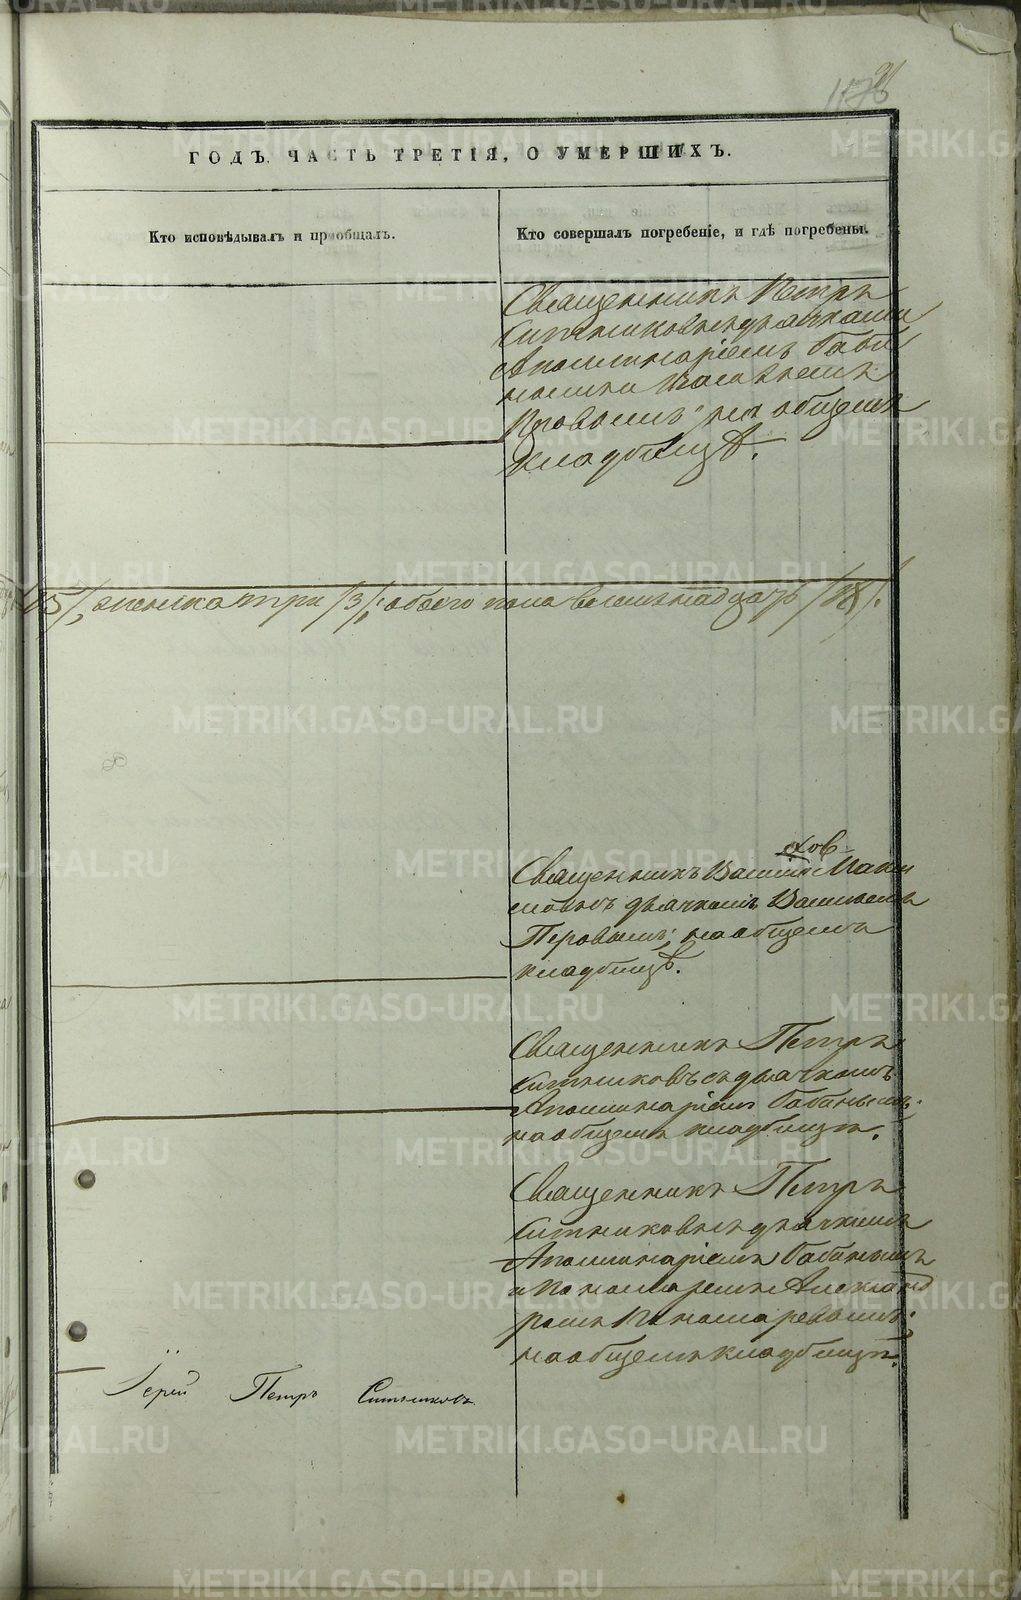 ГОДЪ. ЧАСТЬ ТРЕТІЯ, О УМЕРШИХЪ.
Кто исповѣдывалъ и пріобщалъ.
Кто совершалъ погребеніе, и гдѣ погребены.
Священникъ Петръ
Ситниковъ съ дьячками
Аполлинаріемъ Габи
нымъ и
на общемъ
кладбищѣ.
15/, женска три /3/, обоего пола восемнадцать /18/.
Священникъ Василій Маки
ховъ
съ дьячкомъ Васильемъ
Перовымъ; на общемъ
кладбищѣ.
Священникъ Петръ
Ситниковъ съ дьячкомъ
Аполлинаріемъ Габинымъ;
на общемъ кладбищѣ.
Священникъ Петръ
Ситниковъ съ дьячкомъ
Аполлинаріемъ Габинымъ
и пономаремъ Александ
ромъ Пономаревымъ;
на общемъ кладбищѣ.
Іерей Петръ Ситниковъ
METRIKI.GASO-URAL.RU